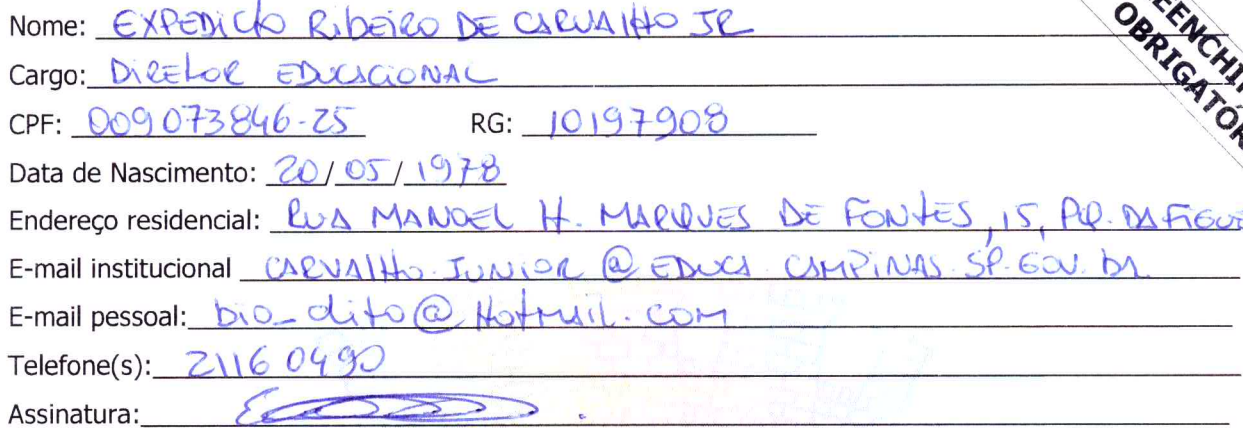 Nome: EXPEDICTO RIBEIRO DE CARVALHO JR
Cargo: DIRETOR EDUCACIONAL
CPF: 009073846-25 RG: 10197908
Data de Nascimento: 20/05/1978
Endereço residencial: RUA MANOEL H. MARQUES DE FONTES, 15, PQ. DA FIGUE
E-mail institucional CARVALHO.JUNIOR@EDUCA.CAMPINAS.SP.GOV.BR
E-mail pessoal: bio_dito@HOTMAIL.COM
Telefone(s): 2116 0490
Assinatura: